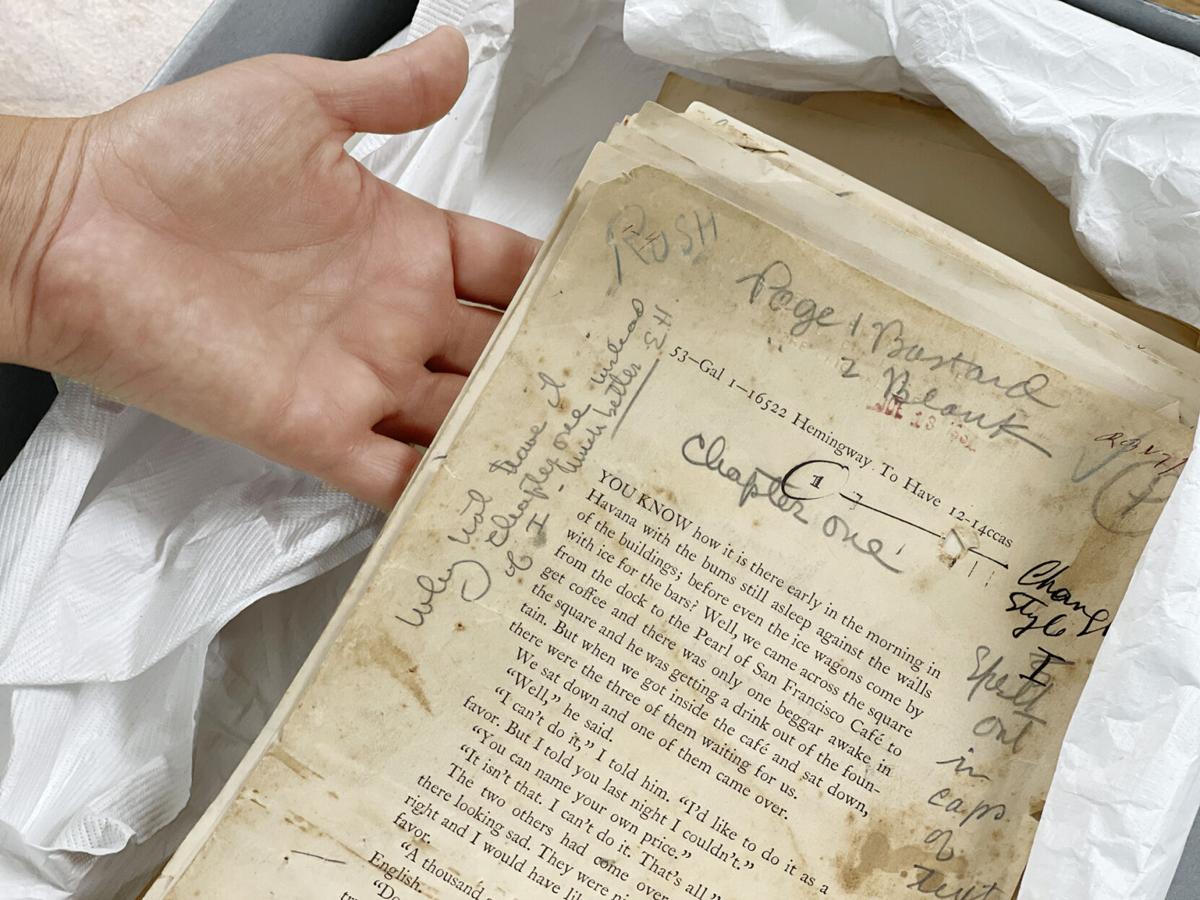 RUSH
Page 1 Bastard
" 2 Blank
53—Gal 1—16522 Hemingway. To Have 12-14ccas
Chapter one
1
Why not have I
Chapter one instead
of I. Much better E.H
Change
Style
I
Spell
out
in
caps
of
text
YOU KNOW how it is there early in the morning in
Havana with the bums still asleep against the walls
of the buildings; before even the ice wagons come by
with ice for the bars? Well, we came across the square
from the dock to the Pearl of San Francisco Café to
get coffee and there was only one beggar awake in
the square and he was getting a drink out of the foun-
tain. But when we got inside the café and sat down,
there were the three of them waiting for us.
We sat down and one of them came over.
“Well,” he said.
“I can’t do it,” I told him. “I’d like to do it as a
favor. But I told you last night I couldn’t.”
“You can name your own price.”
“It isn’t that. I can’t do it. That’s all”
The two others had come over
there looking sad. They were
right and I would have
favor.
“A thousand
English.